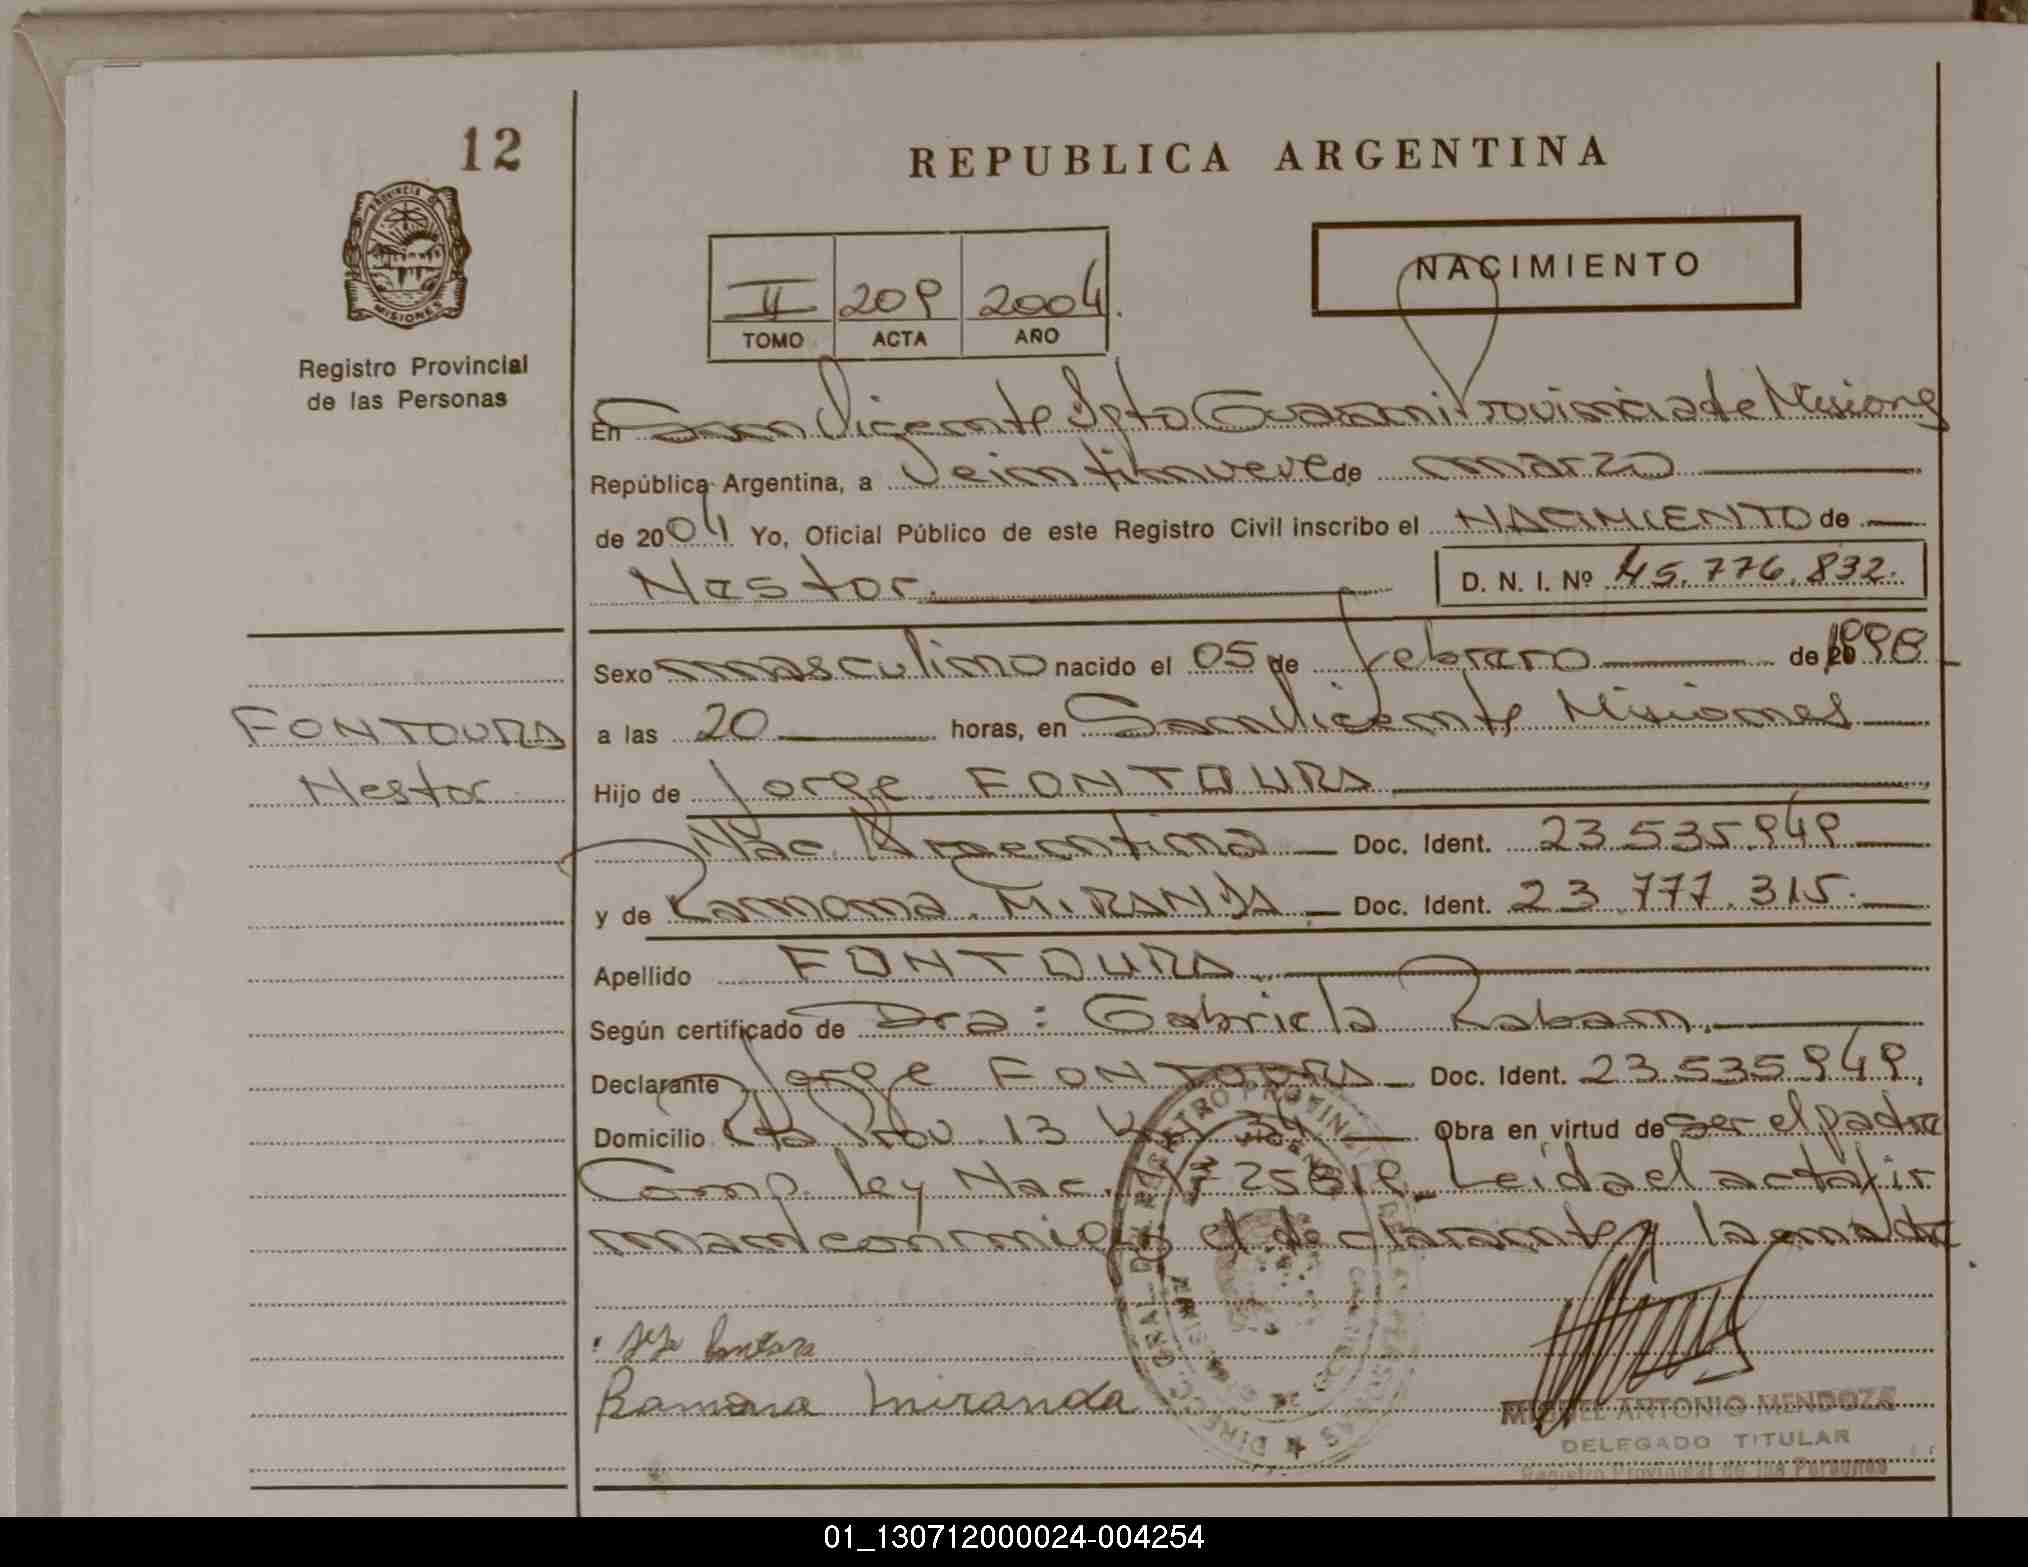 12
REPUBLICA ARGENTINA
PROVINCIA D
MISIONES
Registro Provincial
de las Personas
II 209 2004.
TOMO ACTA AÑO
NACIMIENTO
En San Vicente Dpto Guarani Provincia de Misiones
República Argentina, a Veintinueve de marzo
de 2004 Yo, Oficial Público de este Registro Civil inscribo el NACIMIENTO de
Nestor. D. N. I. Nº 45.776.832.
Sexo masculino nacido el 05 de febrero de 1998
FONTOURA
a las 20 horas, en San Vicente Misiones
Nestor
Hijo de Jorge FONTOURA
Nac. Argentina Doc. Ident. 23.535.949
y de Ramona MIRANDA Doc. Ident. 23.777.315.
Apellido FONTOURA
Según certificado de Dra: Gabriela Raban.
Declarante Jorge FONTOURA Doc. Ident. 23.535949,
Domicilio Rta Prov. 13 K 34 Obra en virtud de ser el padre
Comp. ley Nac. Nº 25819 Leida el acta fir
man conmigo el declarante y la madre
Ramona miranda
MIGUEL ANTONIO MENDOZA
DELEGADO TITULAR
Registro Provincial de las Personas
01_130712000024-004254